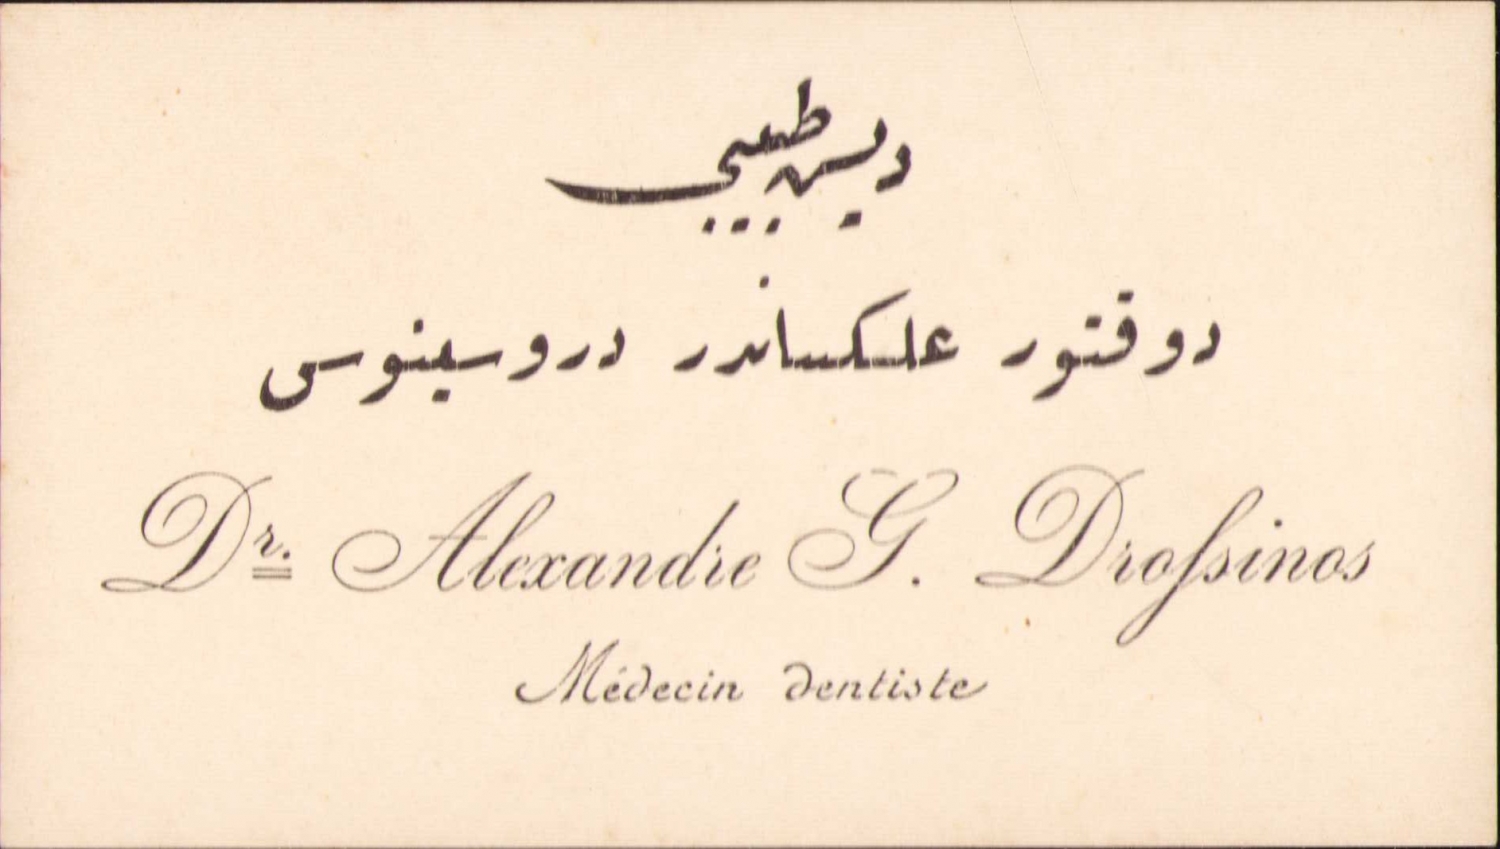 ديس طبيبى
دوقتور علكساندر دروسينوسى
Dr. Alexandre G. Drossinos
Médecin dentiste